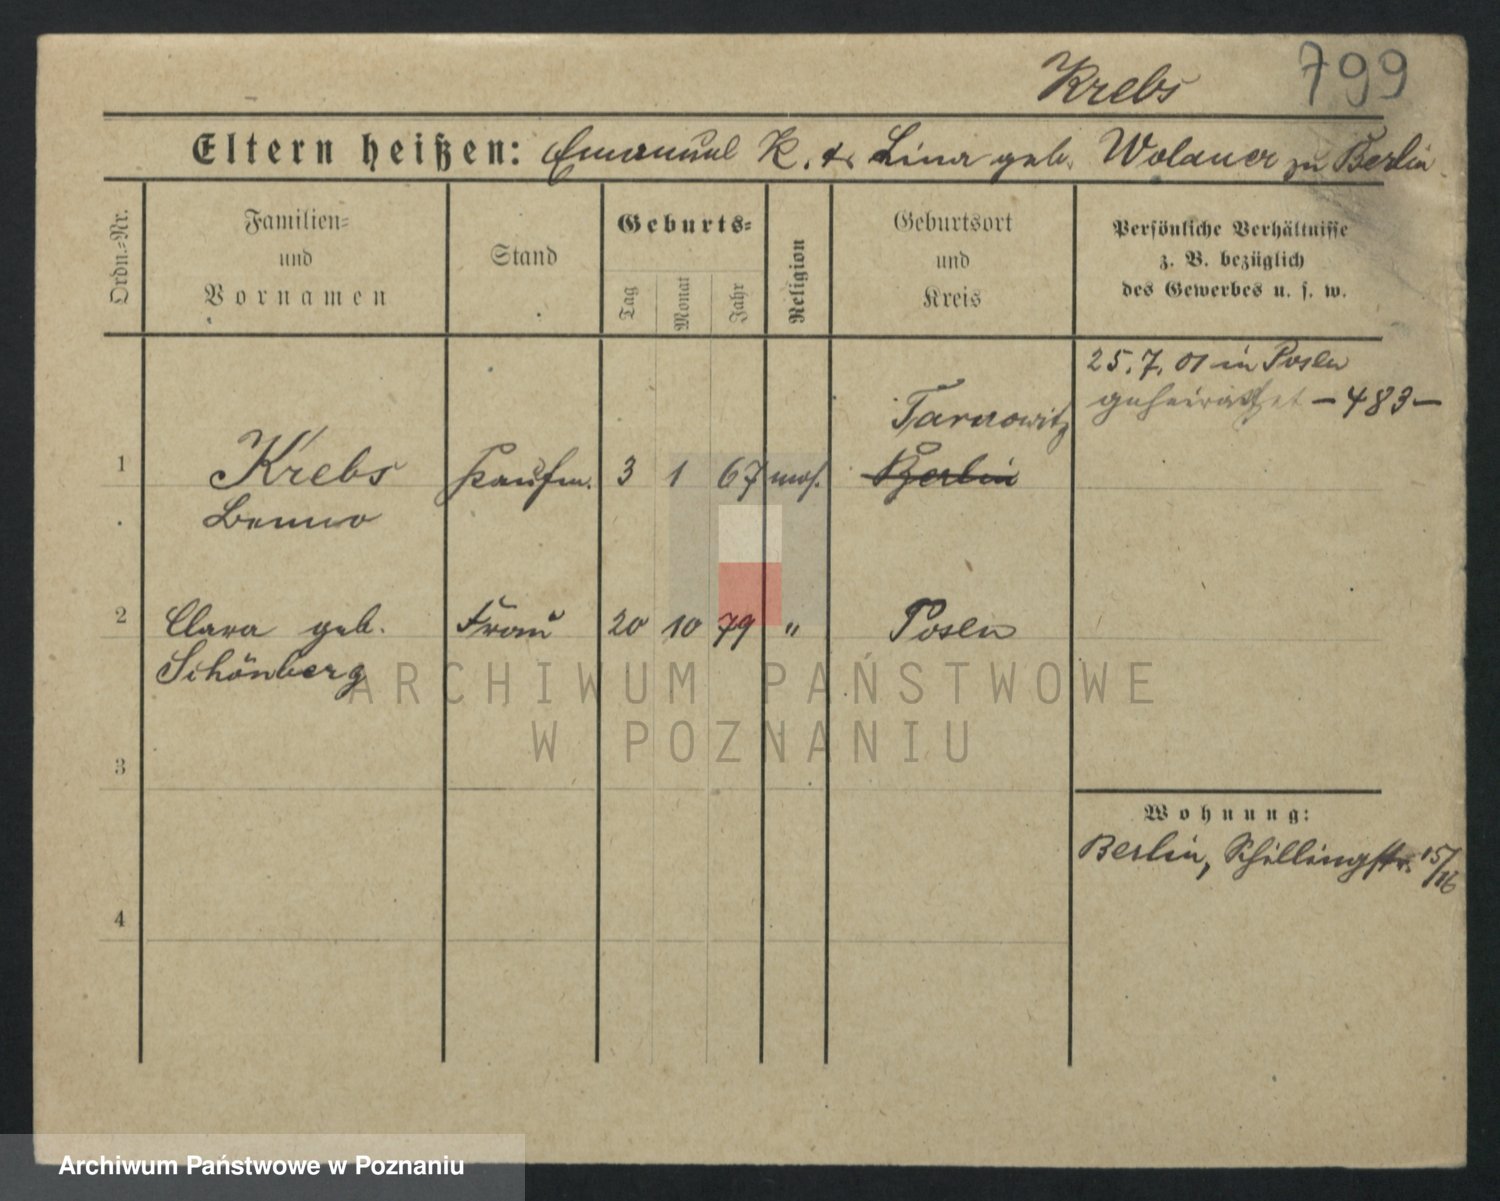 Krebs 799
Eltern heißen: Emanuel K. & Lina geb. Wolauer zu Berlin
Ordn.=Nr.
Familien=
und
Vornamen
Stand
Geburts=
Tag
Monat
Jahr
Religion
Geburtsort
und
Kreis
Persönliche Verhältnisse
z. B. bezüglich
des Gewerbes u. s. w.
25. 7. 01 in Posen
geheiratet – 483 –
Tarnowitz
1 Krebs Kaufm. 3 1 67 mos. Berlin
Benno
2 Clara geb. Frau 20 10 79 " Posen
Schönberg
3
Wohnung:
Berlin, Schillingstr. 15/16
4
ARCHIWUM PAŃSTWOWE
W POZNANIU
Archiwum Państwowe w Poznaniu